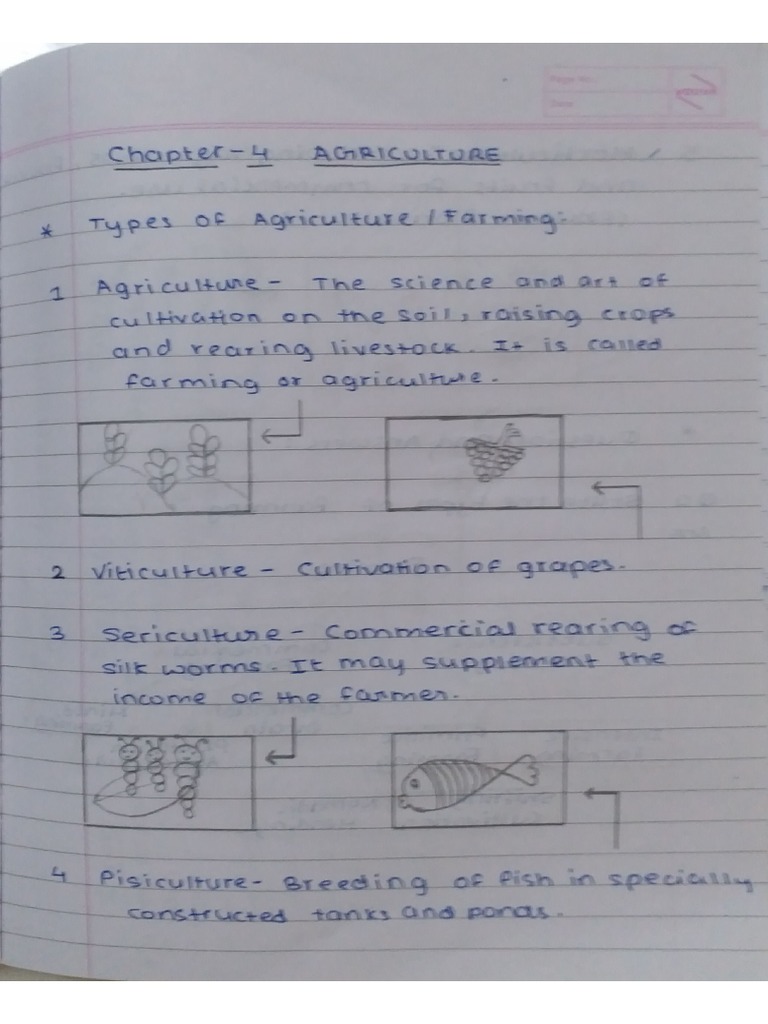 Page No.
Date
Chapter-4 AGRICULTURE
* Types of Agriculture / Farming:
1 Agriculture - The science and art of
cultivation on the soil, raising crops
and rearing livestock. It is called
farming or agriculture.
2 Viticulture - Cultivation of grapes.
3 Sericulture - Commercial rearing of
silk worms. It may supplement the
income of the farmer.
4 Pisiculture - Breeding of fish in specially
constructed tanks and ponds.